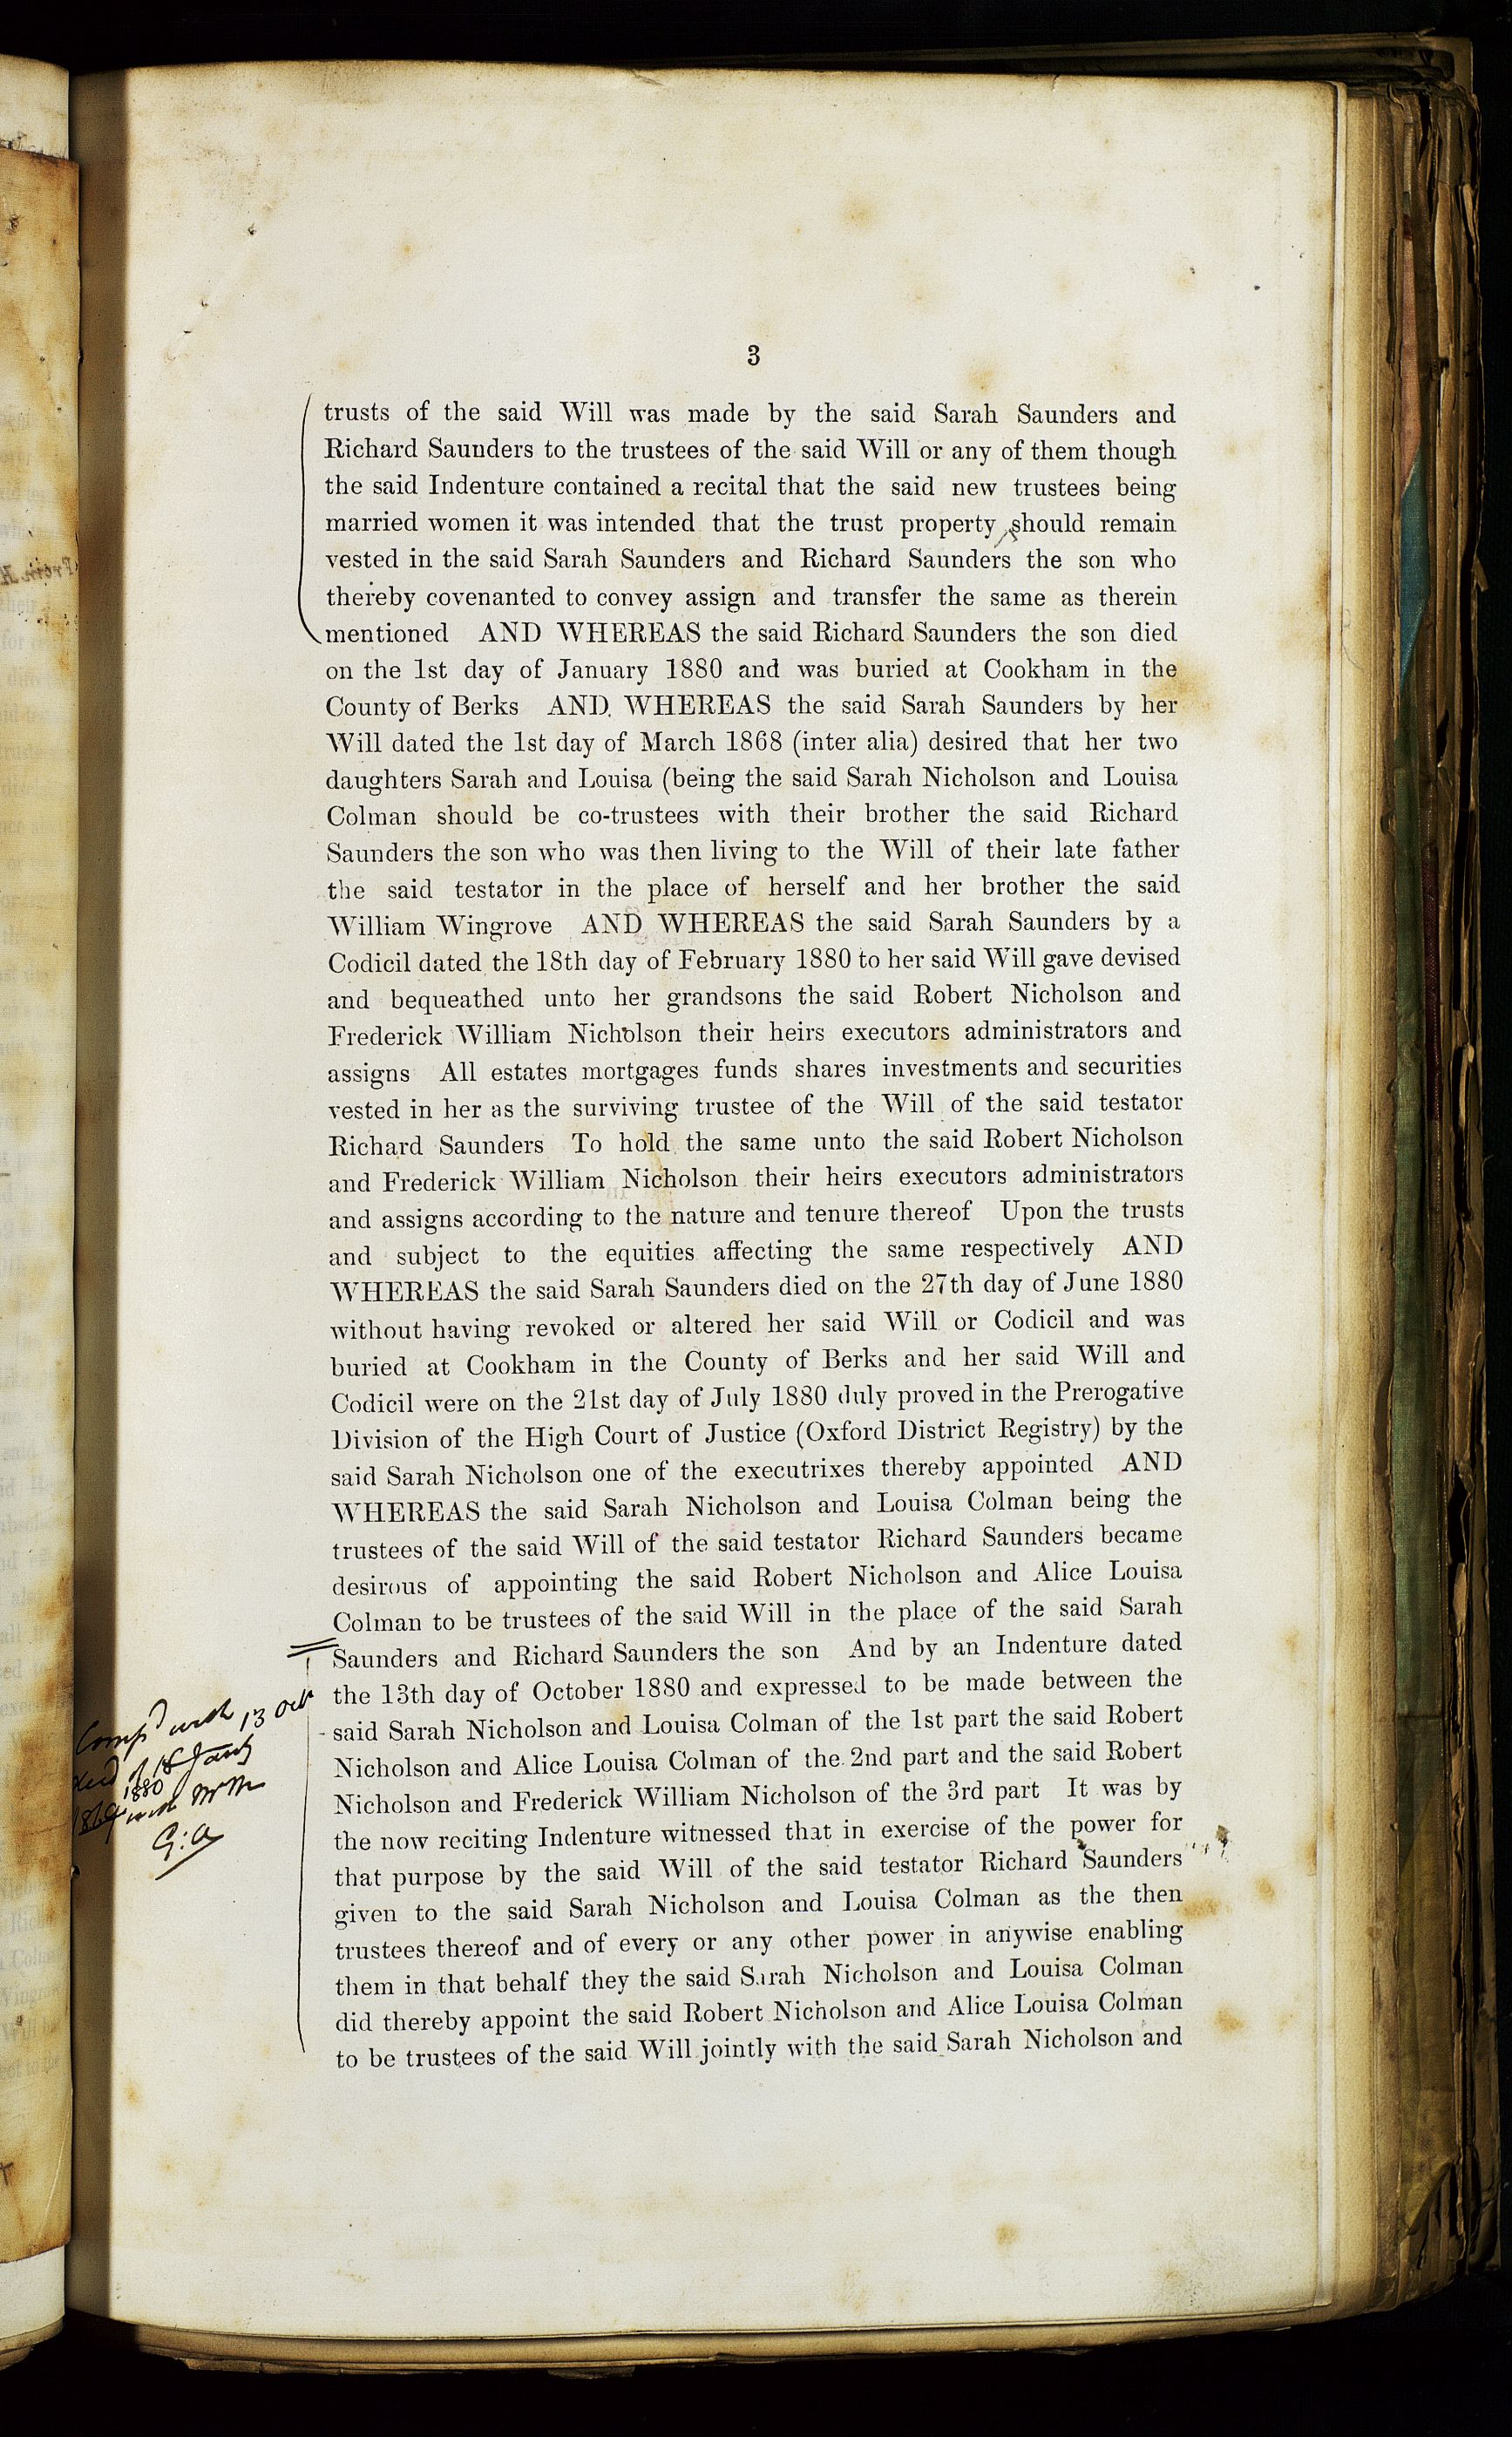 3
trusts of the said Will was made by the said Sarah Saunders and
Richard Saunders to the trustees of the said Will or any of them though
the said Indenture contained a recital that the said new trustees being
married women it was intended that the trust property should remain
vested in the said Sarah Saunders and Richard Saunders the son who
thereby covenanted to convey assign and transfer the same as therein
mentioned AND WHEREAS the said Richard Saunders the son died
on the 1st day of January 1880 and was buried at Cookham in the
County of Berks AND WHEREAS the said Sarah Saunders by her
Will dated the 1st day of March 1868 (inter alia) desired that her two
daughters Sarah and Louisa (being the said Sarah Nicholson and Louisa
Colman should be co-trustees with their brother the said Richard
Saunders the son who was then living to the Will of their late father
the said testator in the place of herself and her brother the said
William Wingrove AND WHEREAS the said Sarah Saunders by a
Codicil dated the 18th day of February 1880 to her said Will gave devised
and bequeathed unto her grandsons the said Robert Nicholson and
Frederick William Nicholson their heirs executors administrators and
assigns All estates mortgages funds shares investments and securities
vested in her as the surviving trustee of the Will of the said testator
Richard Saunders To hold the same unto the said Robert Nicholson
and Frederick William Nicholson their heirs executors administrators
and assigns according to the nature and tenure thereof Upon the trusts
and subject to the equities affecting the same respectively AND
WHEREAS the said Sarah Saunders died on the 27th day of June 1880
without having revoked or altered her said Will or Codicil and was
buried at Cookham in the County of Berks and her said Will and
Codicil were on the 21st day of July 1880 duly proved in the Prerogative
Division of the High Court of Justice (Oxford District Registry) by the
said Sarah Nicholson one of the executrixes thereby appointed AND
WHEREAS the said Sarah Nicholson and Louisa Colman being the
trustees of the said Will of the said testator Richard Saunders became
desirous of appointing the said Robert Nicholson and Alice Louisa
Colman to be trustees of the said Will in the place of the said Sarah
Saunders and Richard Saunders the son And by an Indenture dated
the 13th day of October 1880 and expressed to be made between the
said Sarah Nicholson and Louisa Colman of the 1st part the said Robert
Nicholson and Alice Louisa Colman of the 2nd part and the said Robert
Nicholson and Frederick William Nicholson of the 3rd part It was by
the now reciting Indenture witnessed that in exercise of the power for
that purpose by the said Will of the said testator Richard Saunders
given to the said Sarah Nicholson and Louisa Colman as the then
trustees thereof and of every or any other power in anywise enabling
them in that behalf they the said Sarah Nicholson and Louisa Colman
did thereby appoint the said Robert Nicholson and Alice Louisa Colman
to be trustees of the said Will jointly with the said Sarah Nicholson and
Compd with 13 Octr
1880
G: A